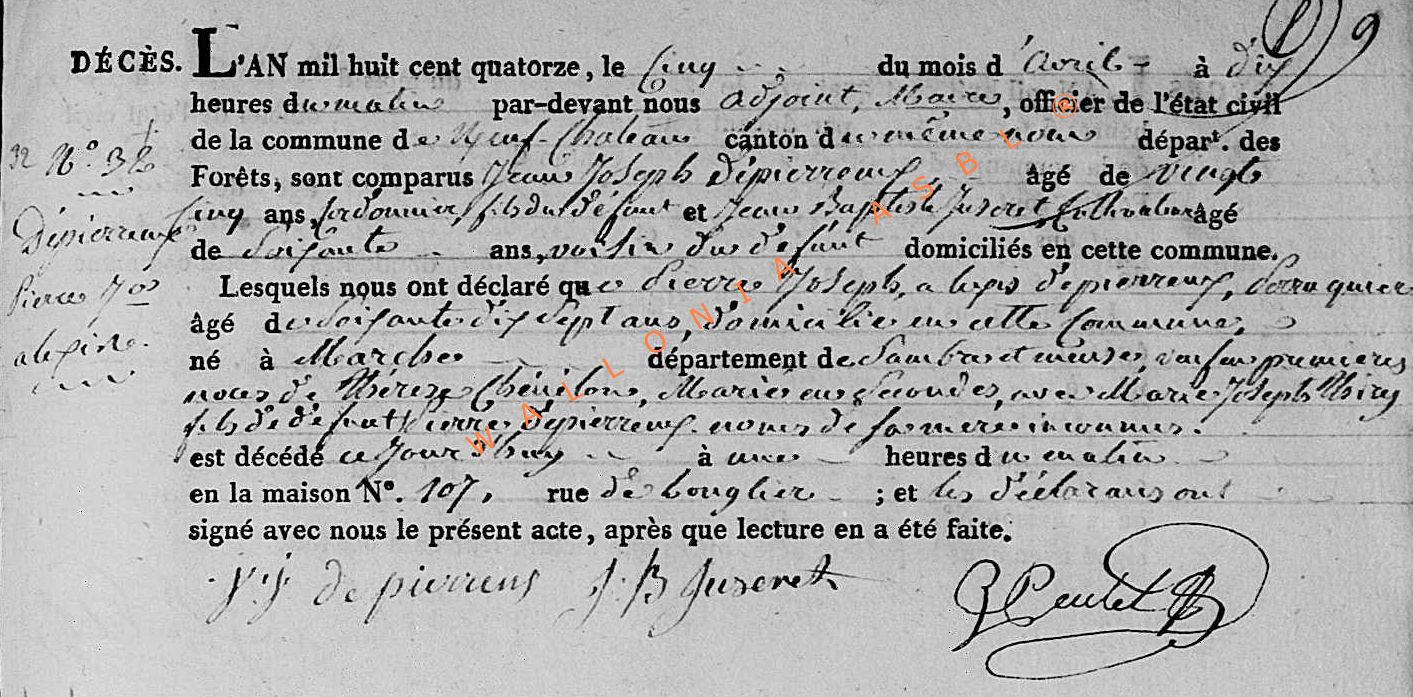 DÉCÈS. L'AN mil huit cent quatorze, le cinq du mois d'avril à dix
heures du matin par-devant nous adjoint, Maire, officier de l'état civil
de la commune de Neuf-Chateau canton du même nom départ. des
32 N.° 32
Forêts, sont comparus Jean Joseph Dépierreux âgé de vingt
cinq ans, Cordonnier, fils du défunt et Jean Baptiste Juseret Cultivateur âgé
Dépierreux
de Soixante ans, voisin du défunt domiciliés en cette commune.
Pierre Jos
Lesquels nous ont déclaré que Pierre Joseph, alexis dépierreux, perruquier
âgé de Soixante dix Sept ans, domicilié en cette Commune,
alexis.
né à Marche département de Sambre et meuse, veuf en premieres
noces de Thérèse, Marié en Secondes, avec Marie Joseph Thiry
fils de défunt Pierre dépierreux noms de sa mere inconnus.
est décédé ce Jour d'huy à une heures du matin
en la maison N°. 107, rue de Longlier ; et les déclarans ont
signé avec nous le présent acte, après que lecture en a été faite.
J. J. de pierreux J. B Juseret
WALLONIA ASBL @